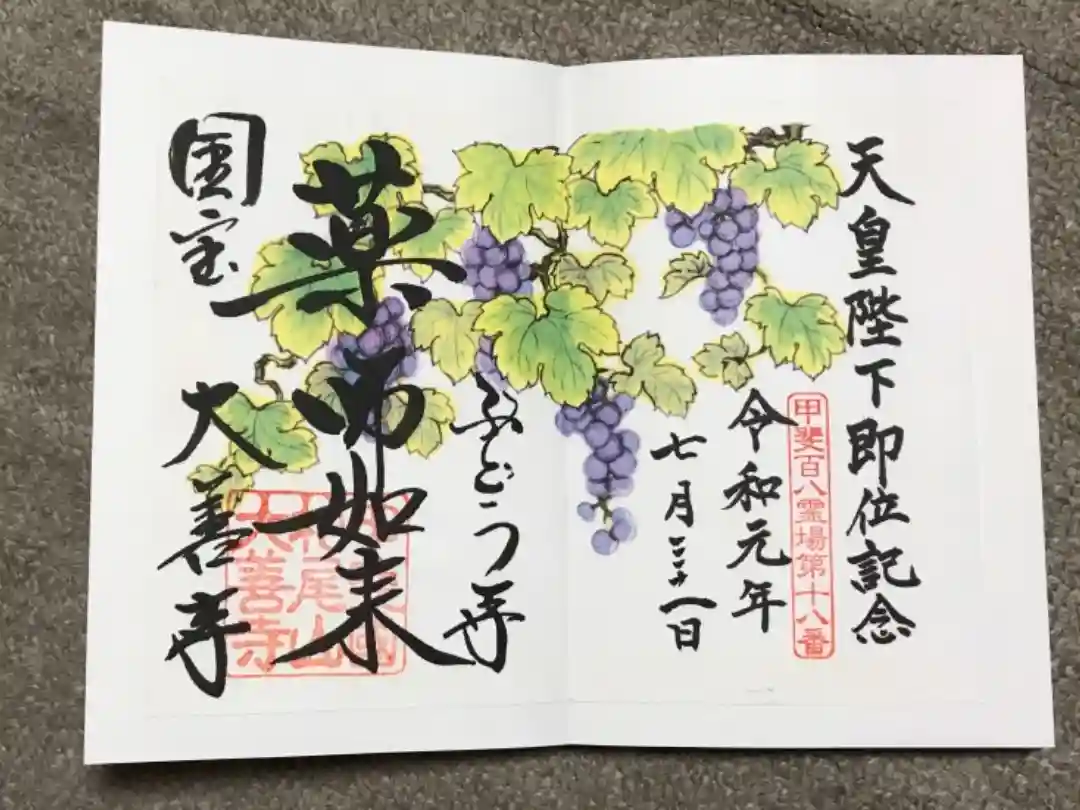 天皇陛下即位記念
甲斐百八霊場第十八番
令和元年
七月三十一日
ぶどう寺
薬師如来
国宝
大善寺
柏尾山
大善寺